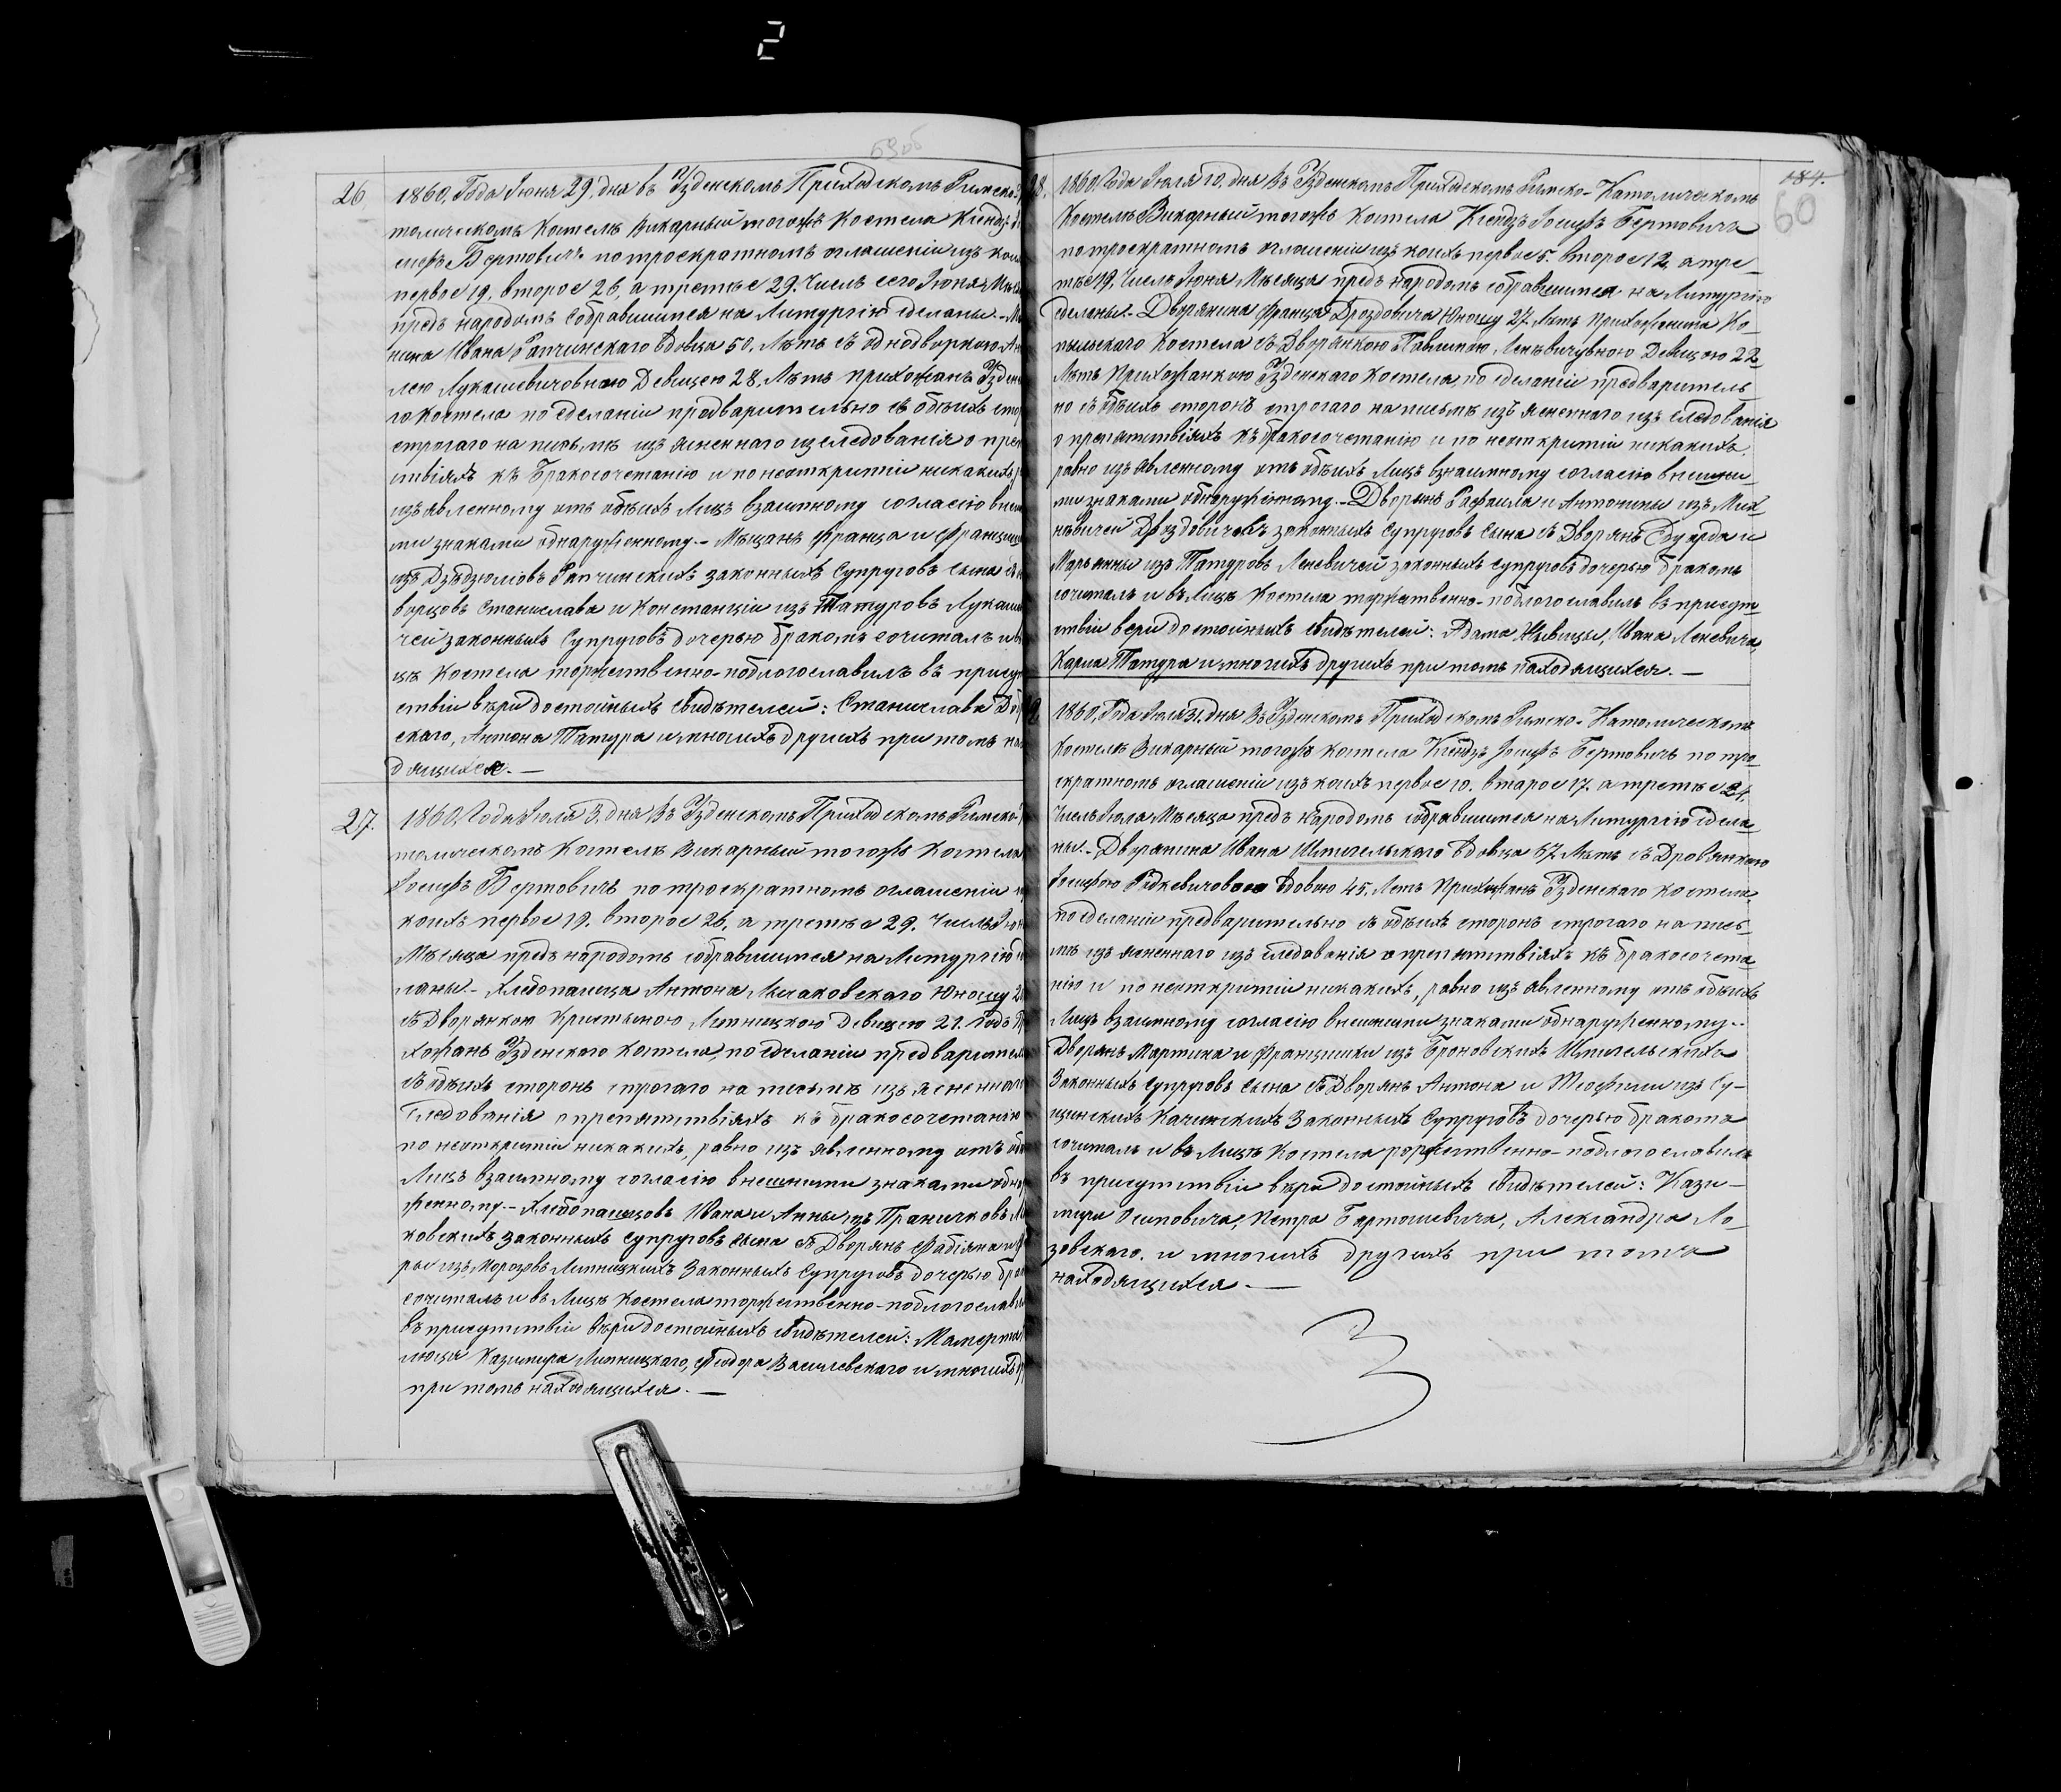 2
59об
26. 1860, Года Іюня 29, дня въ Узденскомъ Приходскомъ Римско-
толическомъ Костелѣ Викарный тогожъ Костела Ксендзъ
сифъ Бертовичъ по троекратномъ оглашеніи изъ ко
первое 19, второе 26, а третье 29. Числъ сего Іюня Мѣ
предъ народомъ собравшимся на Литургію сделаны. - М
нина Ивана Рапчинскаго Вдовца 50. Лѣтъ съ однодворкою
лею Лукашевичовною Девицею 28, Лѣтъ прихожанъ Узден
го костела по сделаніи предварительно съ обѣихъ стор
строгаго на письмѣ изъясненнаго изследованія о преп
ствіяхъ къ бракосочетанію и по неоткрытіи никакихъ,
изъявленному отъ обѣихъ Лицъ взаимному согласію внеш
ми знаками обнаруженному. - Мѣщанъ Франца и Францишки
изъ Рапчинскихъ законныхъ Супруговъ сына съ
ворцовъ Станислава и Констанціи изъ Татуровъ Лукаше
чей законныхъ Супруговъ дочерью бракомъ сочиталъ и в
цѣ Костела торжественно-поблогославилъ въ присут
ствіи вѣри достойныхъ свидѣтелей: Станислава
скаго, Антона Татура и многихъ другихъ при томъ на
дящихся. —
27. 1860, Года Іюля 3, дня Въ Узденскомъ Приходскомъ Римско-
толическомъ Костелѣ Викарный тогожъ Костела
Іосифъ Бертовичъ по троекратномъ оглашеніи
коихъ первое 19. второе 26, а третье 29. Числъ Іюн
Мѣсяца предъ народомъ собравшимся на Литургію
ланы. - Хлебопашца Антона Юношу
съ Дворянкою Кристыною Липницкою Девицею 21. Годъ
хожанъ Узденскаго костела, по сделаніи предварител
съ обѣихъ сторонъ строгаго на письмѣ изъясненнаго
следованія о препятствіяхъ къ бракосочетанію
по неоткрытіи никакихъ, равно изъявленному отъ об
Лицъ взаимному согласію внешними знаками обна
женному. - Хлебопашцовъ Ивана и Анны изъ
ковскихъ законныхъ супруговъ сына съ Дворянъ Фабіяна и
изъ Морозовъ Липницкихъ Законныхъ Супруговъ дочерью бра
сочиталъ и въ Лицѣ Костела торжественно-поблогослави
въ присутствіи вѣри достойныхъ свидѣтелей:
Казимира Липницкаго, Феодора Василевскаго и многихъ
при томъ находящихся. —
184.
60
28. 1860, Года Іюля 10, дня Въ Узденскомъ Приходскомъ Римско-Католическомъ
Костелѣ Викарный тогожъ Костела Ксендзъ Іосифъ Бертовичъ
по троекратномъ оглашеніи изъ коихъ первое 5. второе 12, а тре-
тье 19, Числъ Іюня Мѣсяца предъ народомъ собравшимся на Литургію
сделаны. - Дворянина Франца Дроздовича Юношу 27. Лѣтъ прихожанина Ко-
пыльскаго Костела съ Дворянкою Павлиною Девицею 22
Лѣтъ Прихожанкою Узденскаго костела по сделаніи предваритель
но съ обѣихъ сторонъ строгаго на письмѣ изъясненнаго изследованія
о препятствіяхъ къ бракосочетанію и по неоткрытіи никакихъ,
равно изъявленному отъ обѣихъ Лицъ взаимному согласію внешни
ми знаками обнаруженному. - Дворянъ Рафаила и Антонины изъ Мих
невичей Дроздовичевъ законныхъ Супруговъ Сына съ Дворянъ Едуарда и
Марьянны изъ Татуровъ Леневичей законныхъ супруговъ дочерью бракомъ
сочиталъ и въ Лицѣ Костела торжественно-поблогославилъ въ присут
ствіи вери достойныхъ свидѣтелей: Адама Ивана Леневича,
Карла Татура и многихъ другихъ при томъ находящихся. —
1860, Года Іюля 31, дня Въ Узденскомъ Приходскомъ Римско-Католическомъ
Костелѣ Викарный тогожъ костела Ксендзъ Іосифъ Бертовичъ по тро
екратномъ оглашеніи изъ коихъ первое 10. второе 17. а третье 24,
Числъ Іюля Мѣсяца предъ народомъ собравшимся на Литургію сдела
ны. - Дворянина Ивана Шпигельскаго Вдовца 67. Лѣтъ съ Дворянкою
Вдовою 45. Летъ Прихожанъ Узденскаго костела,
по сделаніи предварительно съ обѣихъ сторонъ строгаго на пись-
мѣ изъясненнаго изследованія о препятствіяхъ къ бракосочета
нію и по неоткрытіи никакихъ, равно изъявленному отъ обѣихъ
Лицъ взаимному согласію внешними знаками обнаруженному. -
Дворянъ Мартина и Францишки изъ Броновскихъ Шпигельскихъ
Законныхъ Супруговъ Сына съ Дворянъ Антона и Теофили изъ Су-
щинскихъ Качинскихъ Законныхъ Супруговъ дочерью бракомъ
сочиталъ и въ Лицѣ Костела торжественно-поблогославилъ
въ присутствіи вѣри достойныхъ свидѣтелей: Кази-
мира Осиповича, Петра Бартошевича, Александра Ло-
зовскаго, и многихъ другихъ при томъ
находящихся. —